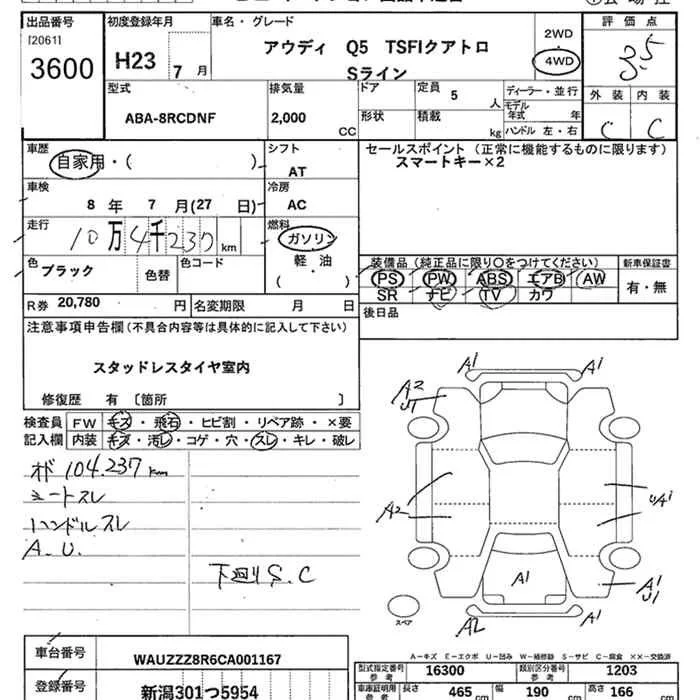 出品番号 初度登録年月 車名・グレード 評価点
[20611]
3600 H23 7 月 アウディ Q5 TSFIクアトロ Sライン 2WD 4WD 3.5
型式 排気量 ドア 定員 5 人 ディーラー・並行 外装 内装
ABA-8RCDNF 2,000 CC 形状 積載 kg モデル年式 年 C C
ハンドル 左・右
車歴 シフト セールスポイント (正常に機能するものに限ります)
自家用・( ) AT スマートキー×2
車検 冷房
8 年 7 月(27 日) AC
走行 燃料
10万4千237 km ガソリン
色 色替 色コード 軽・油 装備品 (純正品に限り〇をつけてください) 新車保証書
ブラック ( ) PS PW ABS エアB AW 有・無
R券 20,780 円 名変期限 月 日 SR ナビ TV カワ
注意事項申告欄 (不具合内容等は具体的に記入して下さい) 後日品
スタッドレスタイヤ室内
修復歴 有 〔箇所 〕
検査員 FW キズ・飛石・ヒビ割・リペア跡・×要
記入欄 内装 キズ・汚レ・コゲ・穴・スレ・キレ・破レ
104.237 km
シートスレ
ハンドルスレ
A.U.
下廻りS.C
A1 A1
A2 U1
A2
UA1
A1
A1 U1
A2 A1
スペア
A-キズ E-エクボ U-凹み W-補修跡 S-サビ C-腐食 XX-交換済
車台番号 WAUZZZ8R6CA001167 型式指定番号 参考 16300 類別区分番号 参考 1203
登録番号 新潟301つ5954 車庫証明用 参考 長さ 465 cm 幅 190 cm 高さ 166 cm